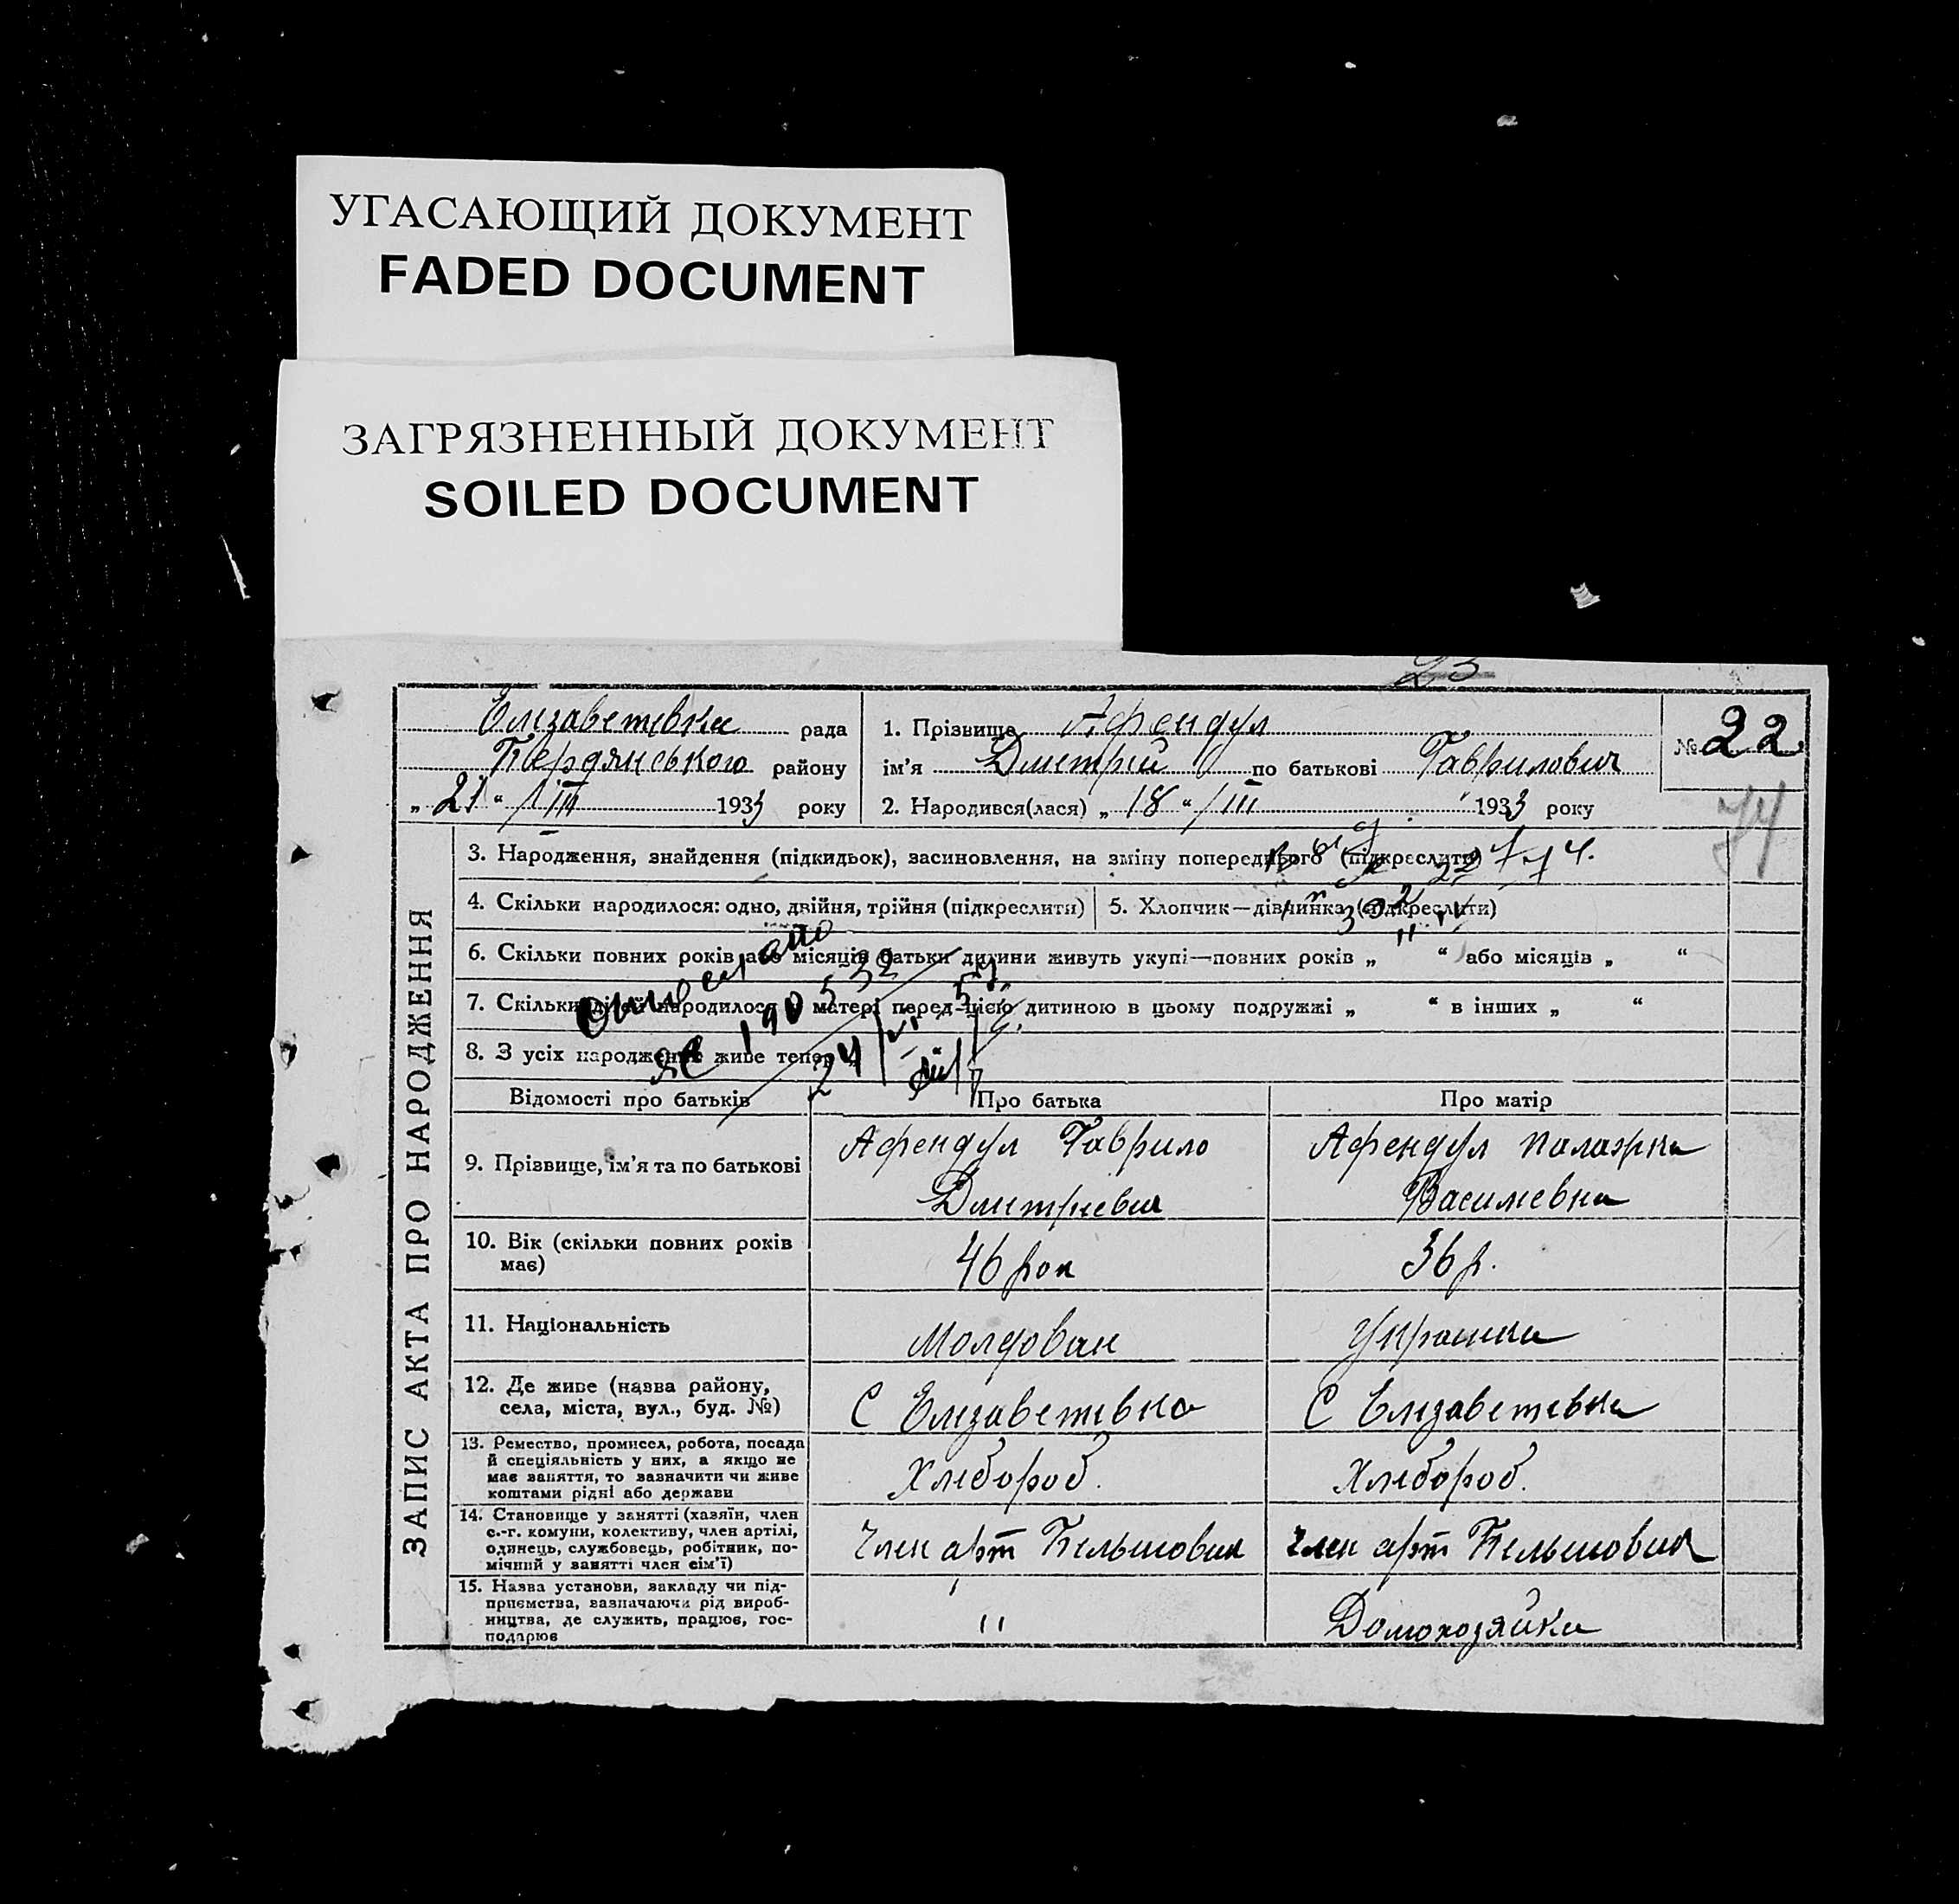 УГАСАЮЩИЙ ДОКУМЕНТ
FADED DOCUMENT
ЗАГРЯЗНЕННЫЙ ДОКУМЕНТ
SOILED DOCUMENT
23
Єлізаветівка рада
Бердянського району
„ 21 “ / III 1933 року
1. Прізвище Афендул
ім’я Дмитрій по батькові Гаврилович
2. Народився(лася) „ 18 “ / III 1933 року
№ 22
74
ЗАПИС АКТА ПРО НАРОДЖЕННЯ
3. Народження, знайдення (підкидьок), засиновлення, на зміну попереднього (підкреслити)
4. Скільки народилося: одно, двійня, трійня (підкреслити)
5. Хлопчик—дівчинка (підкреслити)
6. Скільки повних років або місяців батьки дитини живуть укупі—повних років „ “ або місяців „ “
7. Скільки дітей народилося у матері перед цією дитиною в цьому подружжі „ “ в інших „ “
8. З усіх народжених живе тепер
Відомості про батьків Про батька Про матір
9. Прізвище, ім’я та по батькові
Афендул Гаврило
Дмитриевич
Афендул Палажка
Василевна
10. Вік (скільки повних років
має)
46 рок
36 р.
11. Національність
Молдован
Украинка
12. Де живе (назва району,
села, міста, вул., буд. №)
С Єлізаветівка
С Єлізаветівка
13. Ремество, промисел, робота, посада
й спеціяльність у них, а якщо не
має заняття, то зазначити чи живе
коштами рідні або держави
Хлебороб.
Хлебороб.
14. Становище у занятті (хазяїн, член
с.-г. комуни, колективу, член артілі,
одинець, службовець, робітник, по-
мічний у занятті член сім’ї)
Член арт Більшовик
Член арт Більшовик
15. Назва установи, закладу чи під-
приємства, зазначаючи рід вироб-
ництва, де служить, працює, гос-
подарює
"
Домохозяйка